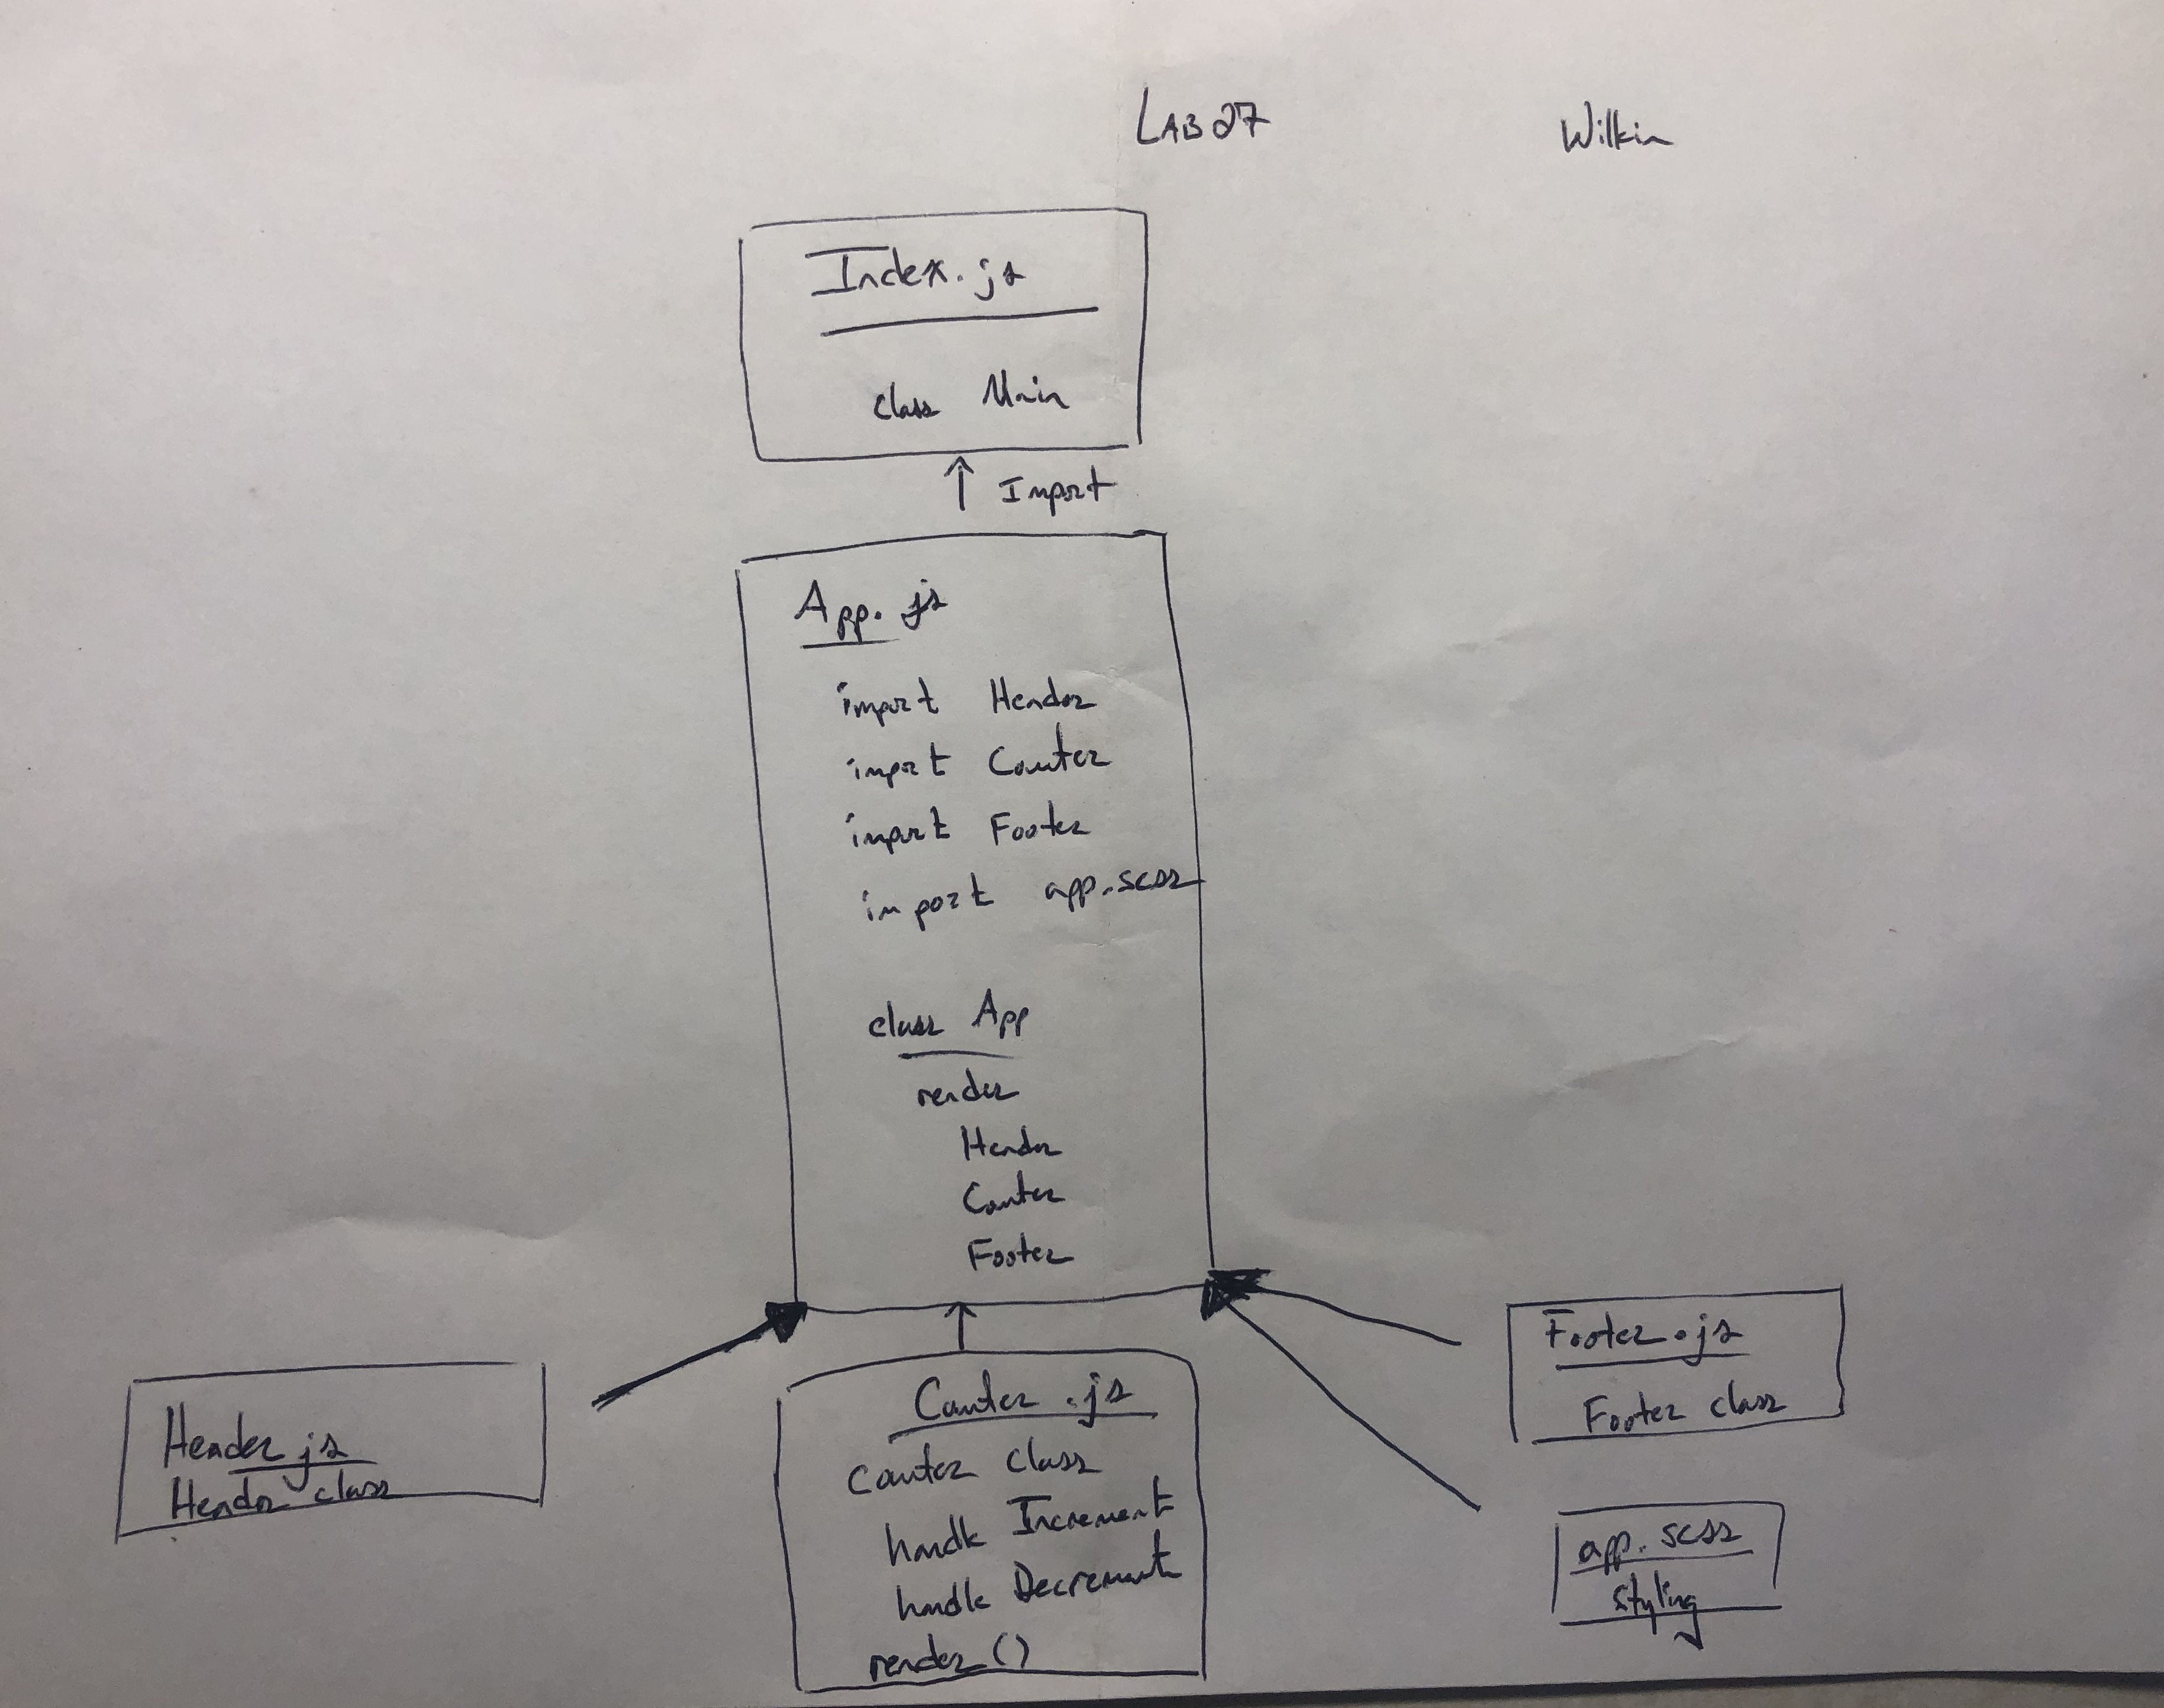 LAB 27
Wilkin
Index.js
class Main
Import
App.js
import Header
import Counter
import Footer
import app.scss
class App
render
Header
Counter
Footer
Header js
Header class
Counter .js
Counter class
handle Increment
handle Decrement
render()
Footer.js
Footer class
app.scss
styling